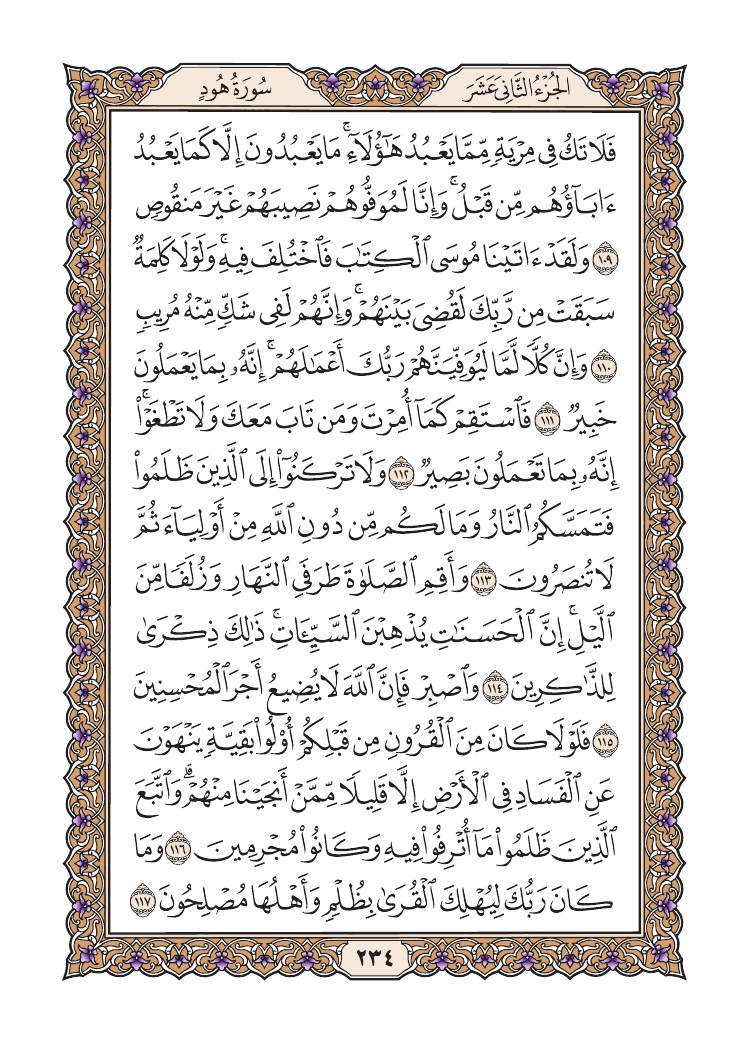 الجُزْءُ الثَّانِي عَشَرَ
سُورَةُ هُودٍ
فَلَا تَكُ فِى مِرْيَةٍ مِّمَّا يَعْبُدُ هَٰٓؤُلَآءِۚ مَا يَعْبُدُونَ إِلَّا كَمَا يَعْبُدُ
ءَابَآؤُهُم مِّن قَبْلُۚ وَإِنَّا لَمُوَفُّوهُمْ نَصِيبَهُمْ غَيْرَ مَنقُوصٍ
١٠٩ وَلَقَدْ ءَاتَيْنَا مُوسَى ٱلْكِتَٰبَ فَٱخْتُلِفَ فِيهِۚ وَلَوْلَا كَلِمَةٌ
سَبَقَتْ مِن رَّبِّكَ لَقُضِىَ بَيْنَهُمْۚ وَإِنَّهُمْ لَفِى شَكٍّ مِّنْهُ مُرِيبٍ
١١٠ وَإِنَّ كُلًّا لَّمَّا لَيُوَفِّيَنَّهُمْ رَبُّكَ أَعْمَٰلَهُمْۚ إِنَّهُۥ بِمَا يَعْمَلُونَ
خَبِيرٌ ١١١ فَٱسْتَقِمْ كَمَآ أُمِرْتَ وَمَن تَابَ مَعَكَ وَلَا تَطْغَوْا۟ۚ
إِنَّهُۥ بِمَا تَعْمَلُونَ بَصِيرٌ ١١٢ وَلَا تَرْكَنُوٓا۟ إِلَى ٱلَّذِينَ ظَلَمُوا۟
فَتَمَسَّكُمُ ٱلنَّارُ وَمَا لَكُم مِّن دُونِ ٱللَّهِ مِنْ أَوْلِيَآءَ ثُمَّ
لَا تُنصَرُونَ ١١٣ وَأَقِمِ ٱلصَّلَوٰةَ طَرَفَىِ ٱلنَّهَارِ وَزُلَفًا مِّنَ
ٱلَّيْلِۚ إِنَّ ٱلْحَسَنَٰتِ يُذْهِبْنَ ٱلسَّيِّـَٔاتِۚ ذَٰلِكَ ذِكْرَىٰ
لِلذَّٰكِرِينَ ١١٤ وَٱصْبِرْ فَإِنَّ ٱللَّهَ لَا يُضِيعُ أَجْرَ ٱلْمُحْسِنِينَ
١١٥ فَلَوْلَا كَانَ مِنَ ٱلْقُرُونِ مِن قَبْلِكُمْ أُو۟لُوا۟ بَقِيَّةٍ يَنْهَوْنَ
عَنِ ٱلْفَسَادِ فِى ٱلْأَرْضِ إِلَّا قَلِيلًا مِّمَّنْ أَنجَيْنَا مِنْهُمْۗ وَٱتَّبَعَ
ٱلَّذِينَ ظَلَمُوا۟ مَآ أُتْرِفُوا۟ فِيهِ وَكَانُوا۟ مُجْرِمِينَ ١١٦ وَمَا
كَانَ رَبُّكَ لِيُهْلِكَ ٱلْقُرَىٰ بِظُلْمٍ وَأَهْلُهَا مُصْلِحُونَ ١١٧
٢٣٤